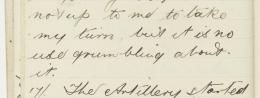 not up to me to take
my turn, but it is no
use grumbling about
it.
17/ The Artillery started